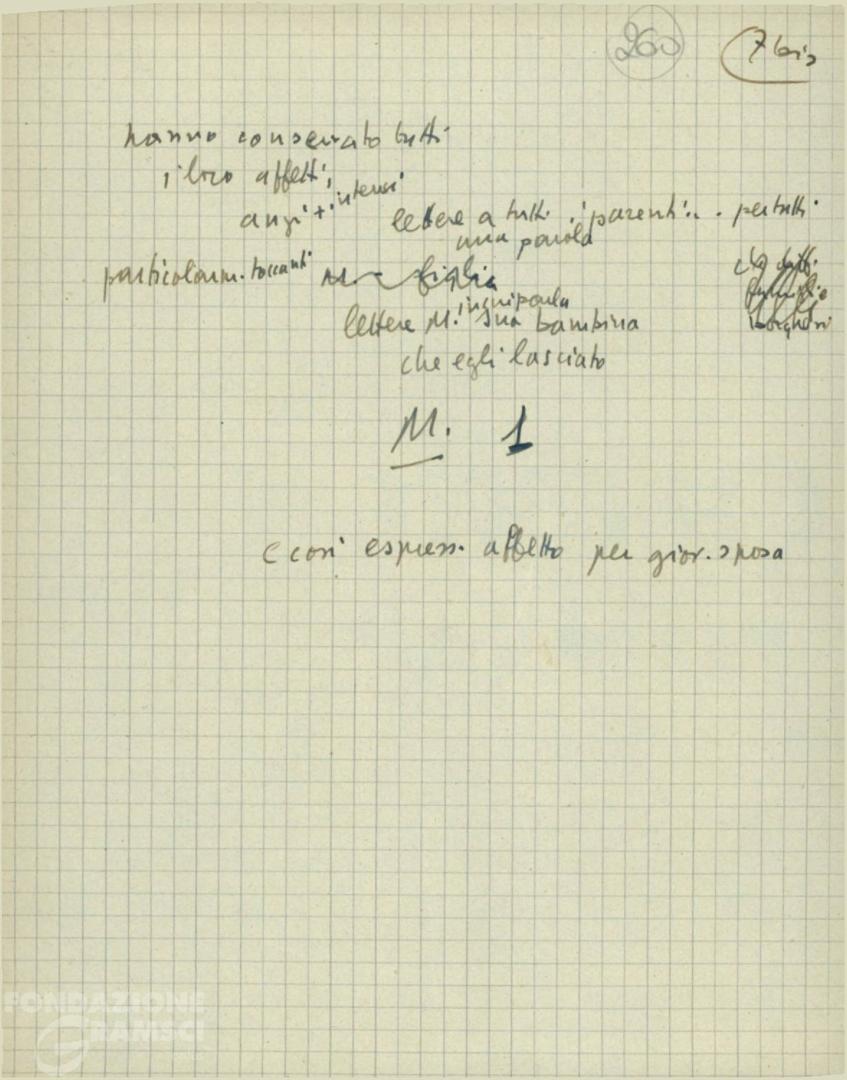 260 7 bis
hanno conservato tutti
i loro affetti,
anzi + intensi
lettere a tutti i parenti... per tutti
una parola
particolarm. toccanti M. figlia
lettere M. in cui parla
sua bambina
che egli lasciato
M. 1
E così espress. affetto per giov. sposa
FONDAZIONE
GRAMSCI